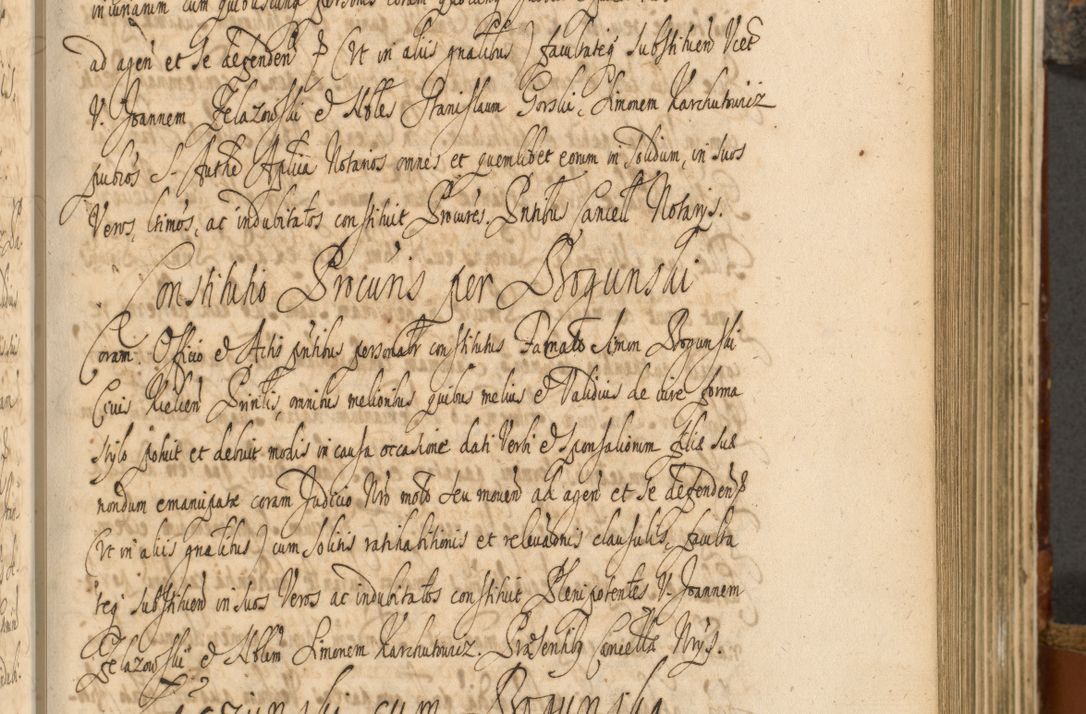 iniuriarum cum quibuscunq personis coram
ad agen et se defenden p (Vt in aliis gnalibus) facultateq substituen Vcet
V. Joannem Zelazowski & Nobles Stanislaum Gorski, Simonem Karchutowicz
publcos S. Autht Aplica Notarios omnes et quemlibet eorum in solidum, in suos
Veros, ltimos, ac indubitatos constituit Procures. Pntibus Cancell Notarys.
Constitutio Procuris per Bogunski
Coram Officio & Actis pntibus personalr constitutus Famato Simon Bogunski
Civis Kielcen Prinlis, omnibus melioribus quibus melius & Validius de iure forma
stylo potuit et debuit modis in causa occasione dati Verbi & sponsalionum filiæ suæ
nondum emancipatæ coram Judicio Nro moto seu moven ad agen et se defenden p
(Vt in aliis gnalibus) cum solitis ratihabitionis et relevaonis clausulis, faculta
teq substituen in suos Veros ac indubitatos constituit Plenipotentes V. Joannem
Zelazowski & Noblem Simonem Karchutowicz. Præsentibq Cancellæ Nrys.
cum Bogunska